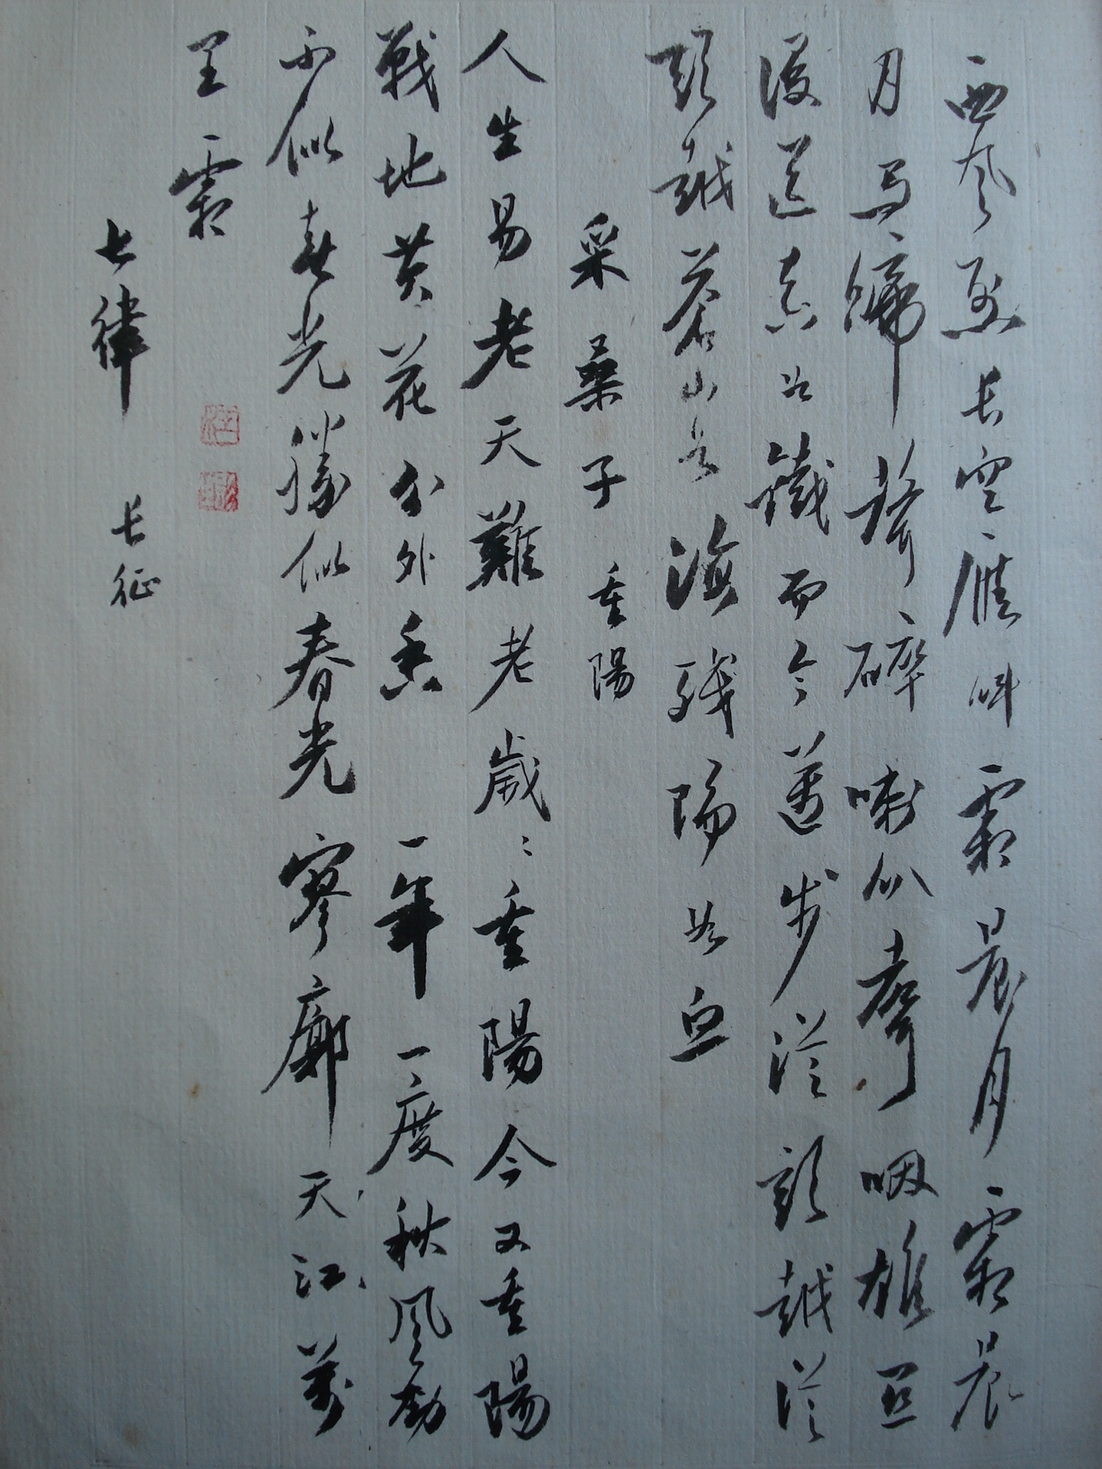 西风烈長空雁叫霜晨月霜晨
月马蹄聲碎喇叭聲咽雄关
漫道真如鐵而今邁步從頭越從
頭越蒼山如海殘陽如血
采桑子 重陽
人生易老天難老歲々重陽今又重陽
戰地黄花分外香 一年一度秋風勁
不似春光勝似春光寥廓天江萬
里霜
七律 長征